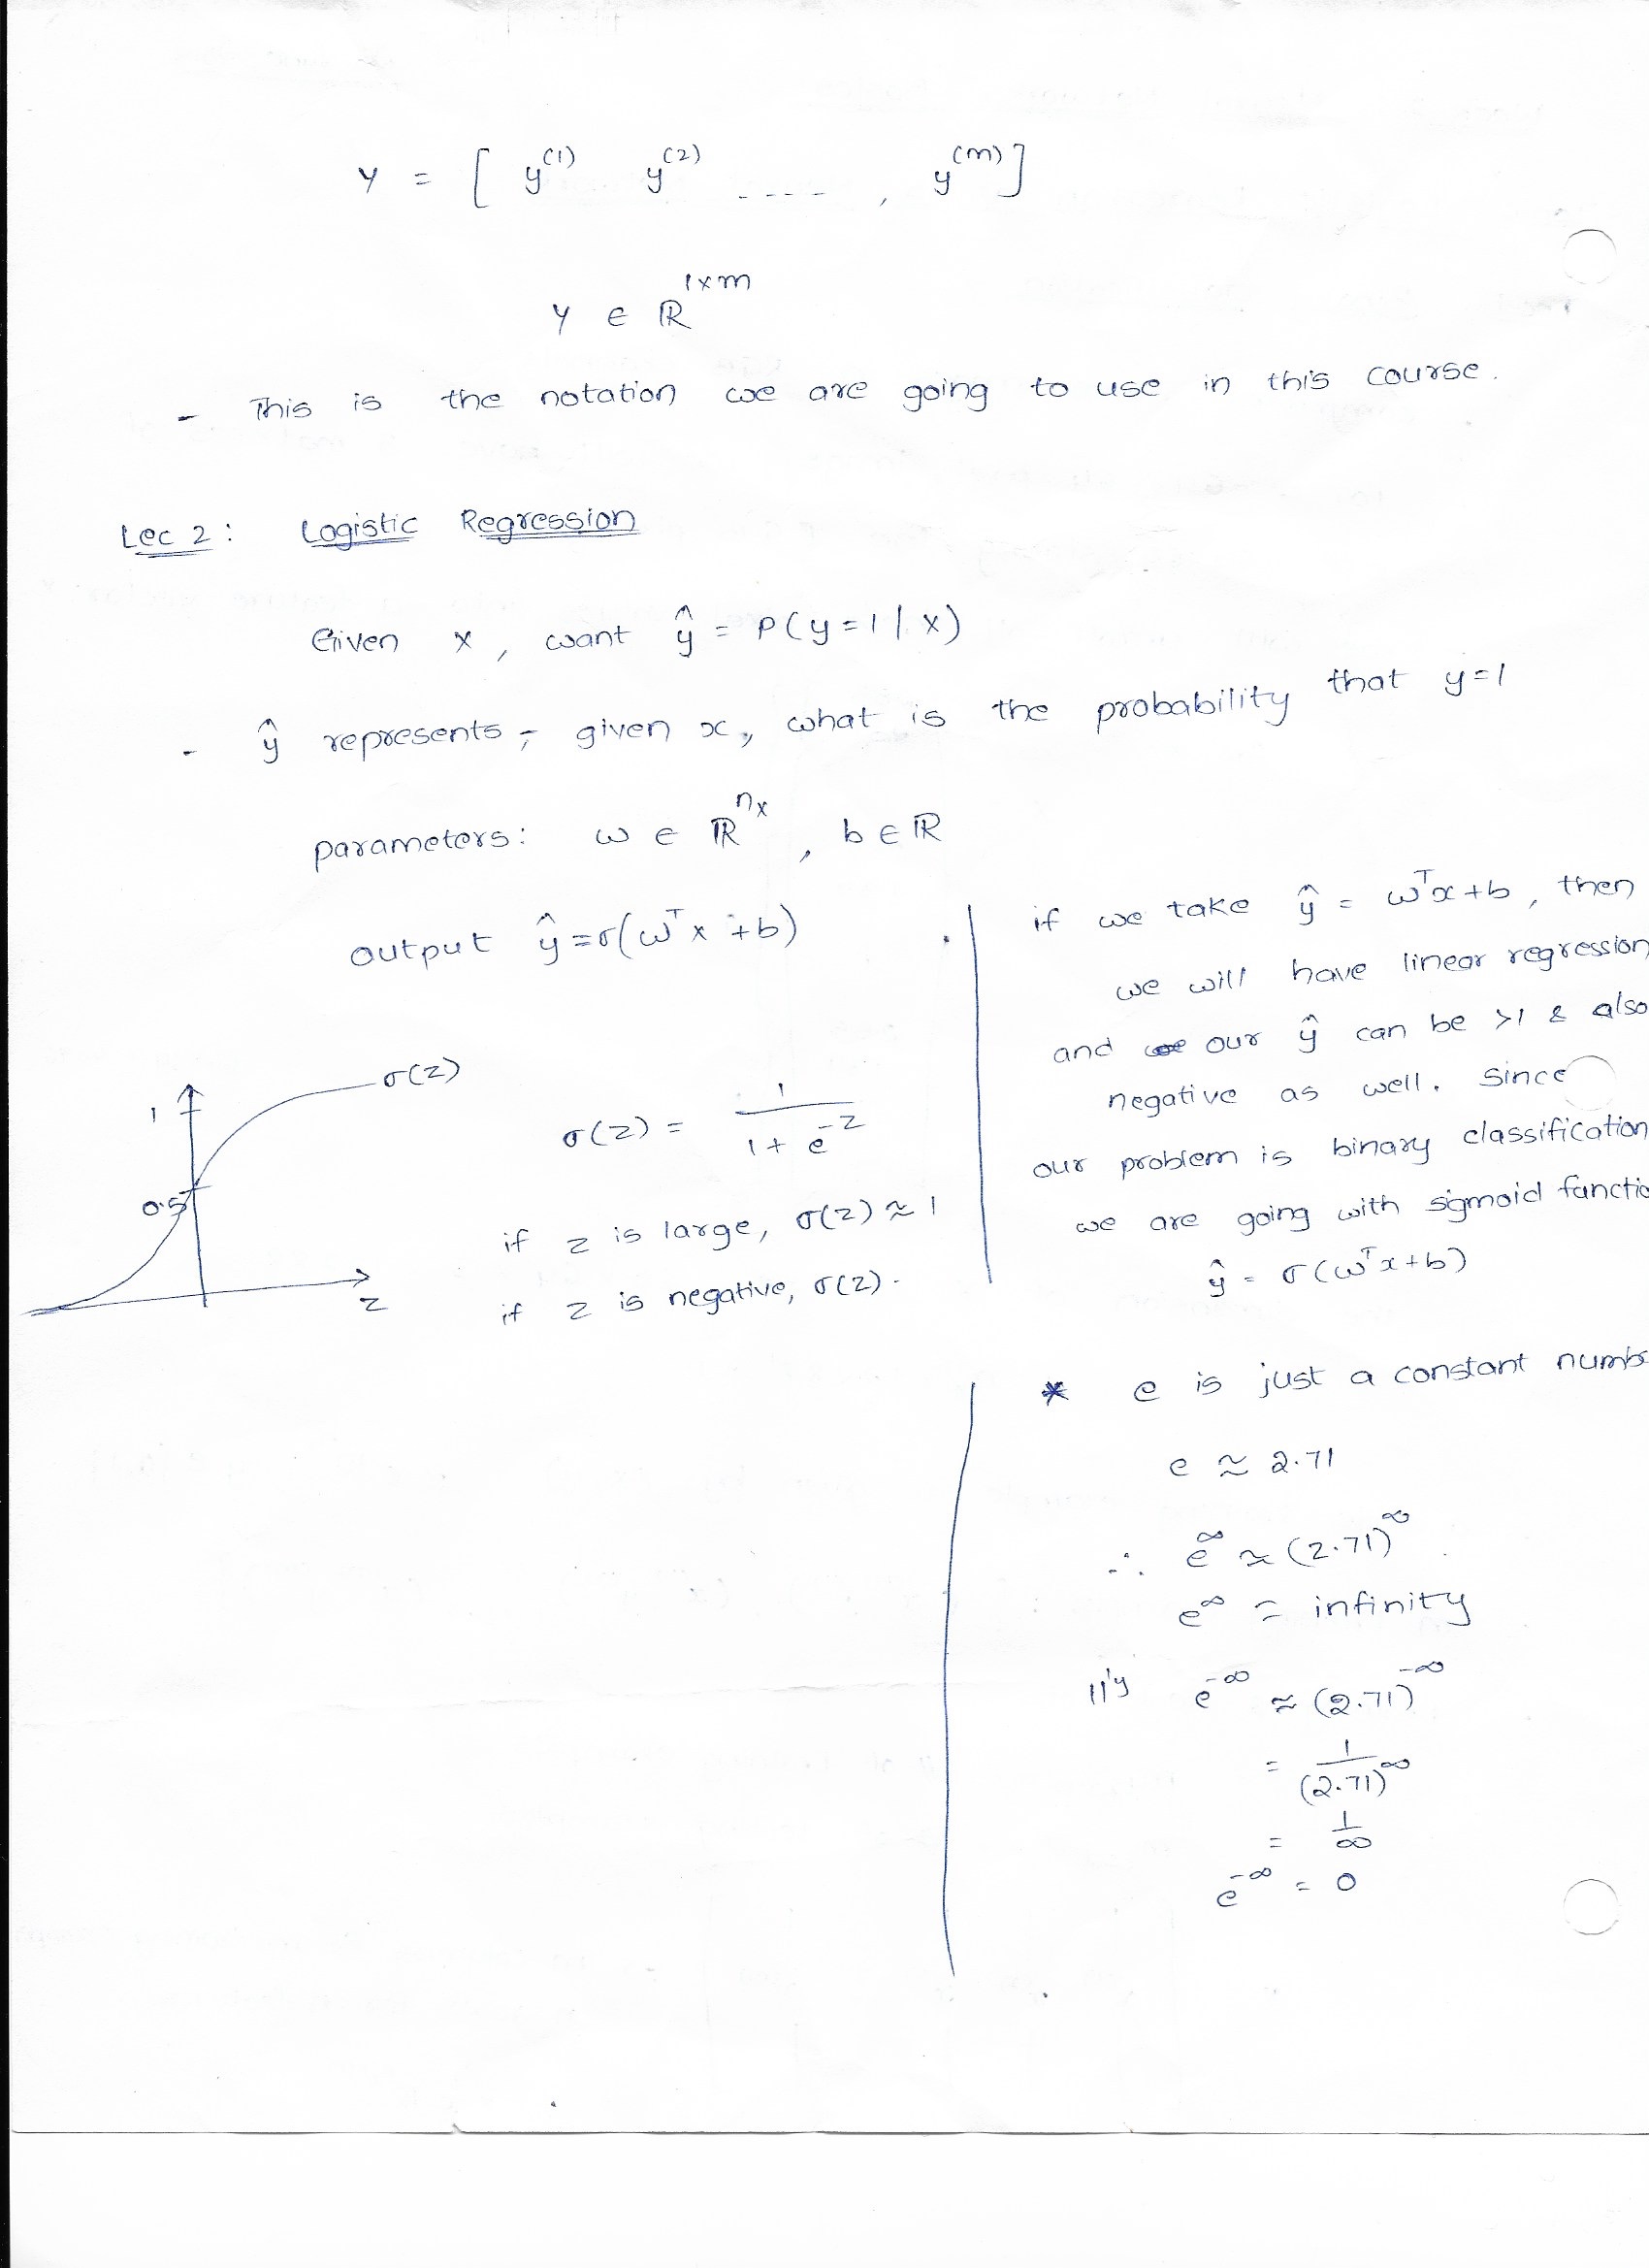 Y = [ y^(1) y^(2) ---- , y^(m) ]
Y ∈ ℝ^1×m
- This is the notation we are going to use in this course.
Lec 2 : Logistic Regression
Given x, want ŷ = P(y=1 | x)
- ŷ represents, given x, what is the probability that y=1
parameters: ω ∈ ℝ^nx, b ∈ ℝ
output ŷ = σ(ω^T x + b)
σ(z)
1
0.5
z
σ(z) = 1 / (1 + e^-z)
if z is large, σ(z) ≈ 1
if z is negative, σ(z).
if we take ŷ = ω^T x + b, then
we will have linear regression
and our ŷ can be >1 & also
negative as well. Since
our problem is binary classification
we are going with sigmoid functio
ŷ = σ(ω^T x + b)
* e is just a constant numbe
e ≈ 2.71
∴ e^∞ ≈ (2.71)^∞
e^∞ = infinity
ll'y e^-∞ ≈ (2.71)^-∞
= 1 / (2.71)^∞
= 1/∞
e^-∞ = 0